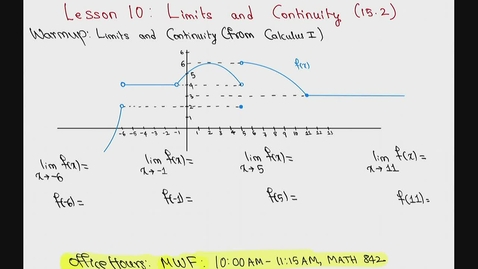 Lesson 10: Limits and Continuity (15.2)
Warmup: Limits and Continuity (from Calculus I)
f(x)
6
6
5
4
3
2
1
-6 -5 -4 -3 -2 -1 1 2 3 4 5 6 7 8 9 10 11 12 13
lim f(x)= lim f(x)= lim f(x)= lim f(x)=
x→-6 x→-1 x→5 x→11
f(-6)= f(-1)= f(5)= f(11)=
Office Hours: MWF: 10:00AM-11:15AM, MATH 842